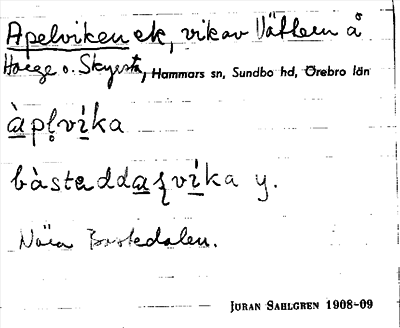 Apelviken ek, vik av Vättern å
Harge o. Skyersta, Hammars sn, Sundbo hd, Örebro län
àpl̥vìka
bàstaddaʂvìka y.
Nära Bastedalen.
JÖRAN SAHLGREN 1908-09